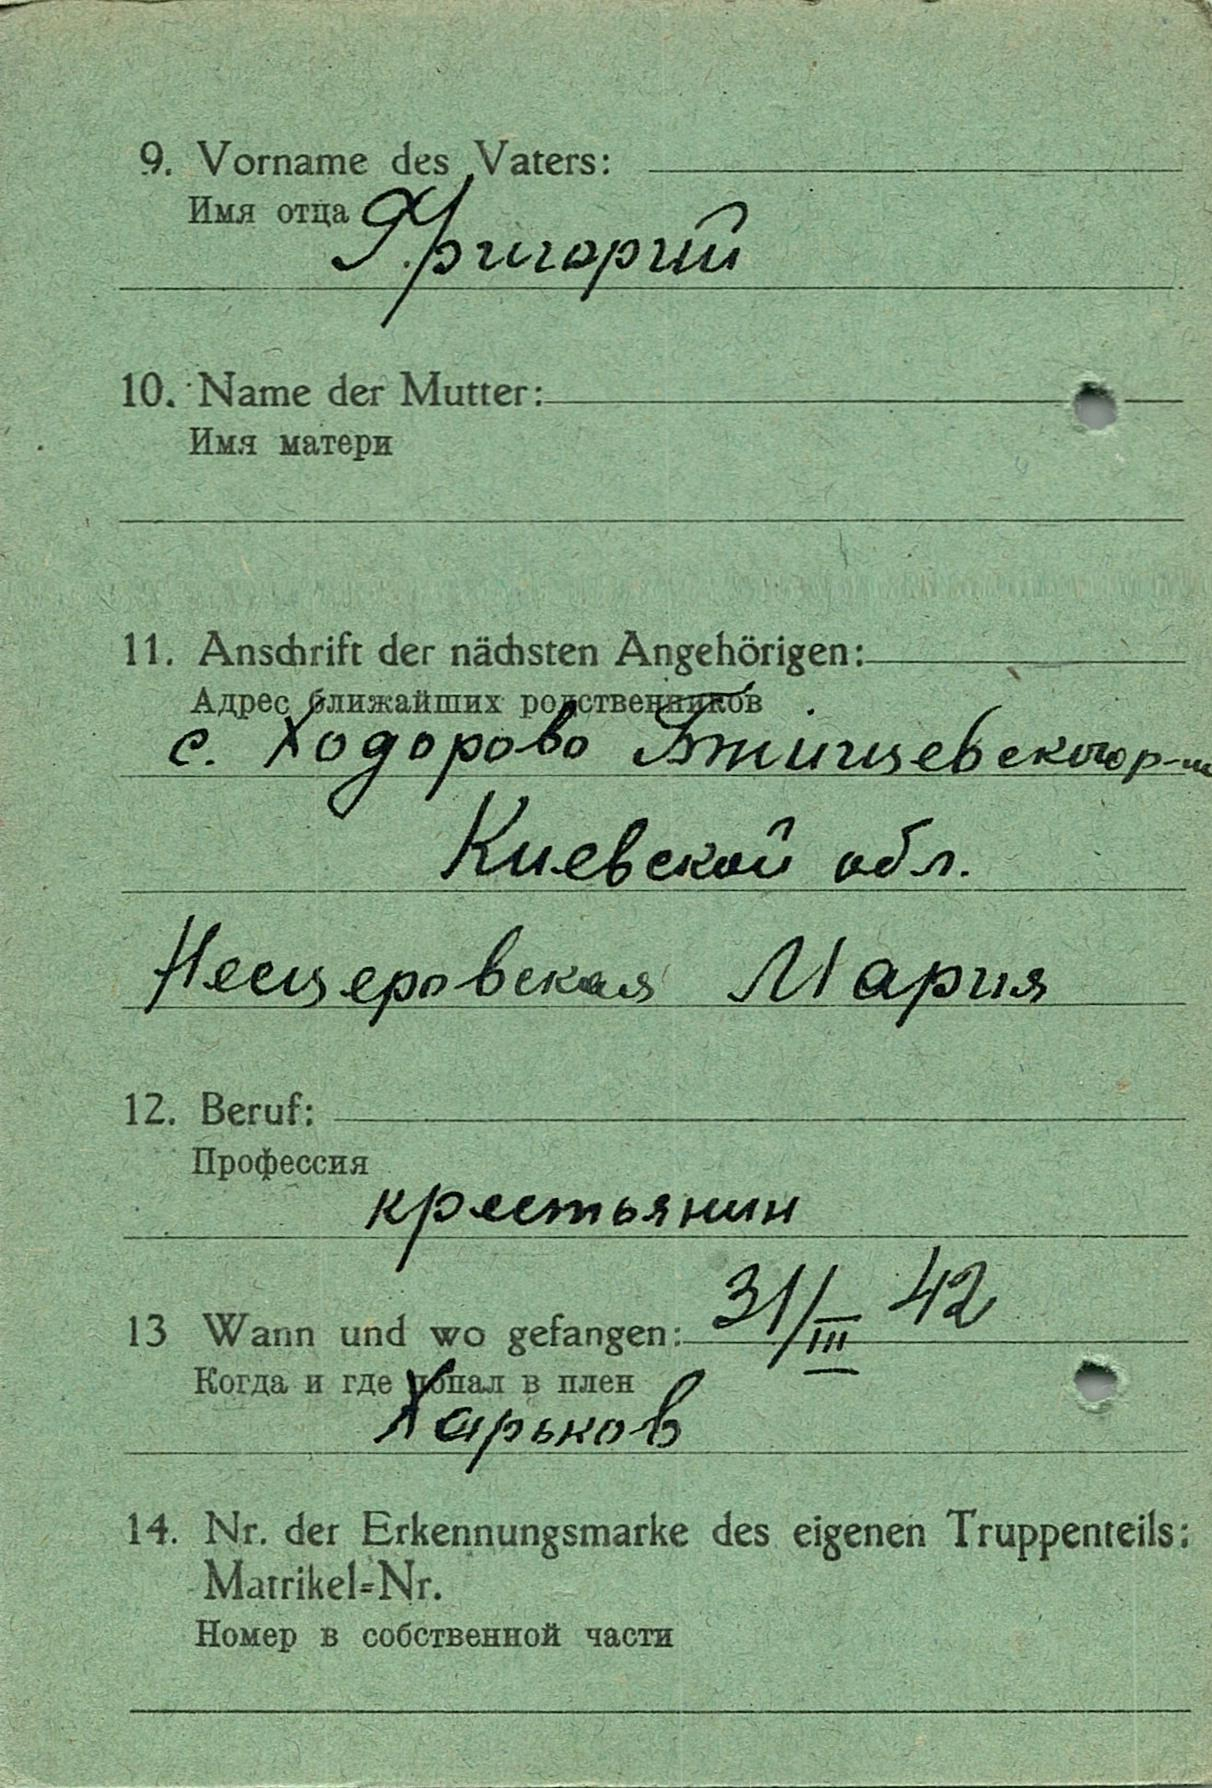 9. Vorname des Vaters:
Имя отца
Григорий
10. Name der Mutter:
Имя матери
11. Anschrift der nächsten Angehörigen:
Адрес ближайших родственников
с. Ходорово
Киевской обл.
Нещеровская Мария
12. Beruf:
Профессия
крестьянин
13 Wann und wo gefangen: 31/III 42
Когда и где попал в плен
Харьков
14. Nr. der Erkennungsmarke des eigenen Truppenteils:
Matrikel=Nr.
Номер в собственной части